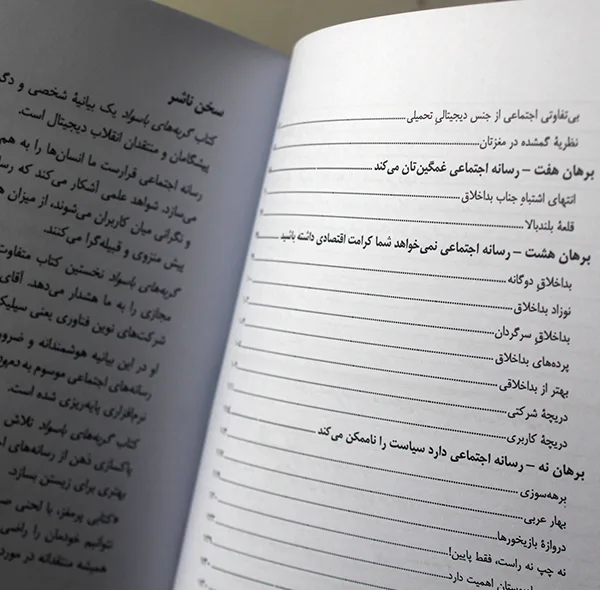 سخن ناشر
کتاب گربه‌های باسواد یک بیانیهٔ شخصی و دگ
پیشگامان و منتقدان انقلاب دیجیتال است.
رسانه اجتماعی قرارست ما انسان‌ها را به هم
می‌سازد. شواهد علمی آشکار می‌کند که رسا
و نگرانی میان کاربران می‌شوند، از میزان ه
پیش منزوی و قبیله‌گرا می‌کنند.
گربه‌های باسواد نخستین کتاب متفاوت
مجازی را به ما هشدار می‌دهد. آقای
شرکت‌های نوین فناوری یعنی سیلیک
او در این بیانیه هوشمندانه و ضرور
رسانه‌های اجتماعی موسوم به دم‌ود
نرم‌افزاری پایه‌ریزی شده است.
کتاب گربه‌های باسواد تلاش
پاکسازی ذهن از رسانه‌های ا
بهتری برای زیستن بسازد.
«کتابی پرمغز، با لحنی ص
نتوانیم خودمان را راضی
همیشه منتقدانه در مورد
بی‌تفاوتی اجتماعی از جنس دیجیتالیِ تحمیلی
نظریهٔ گمشده در مغزتان
برهان هفت – رسانه اجتماعی غمگین‌تان می‌کند
انتهای اشتباهِ جناب بداخلاق
قلعهٔ بلندبالا
برهان هشت – رسانه اجتماعی نمی‌خواهد شما کرامت اقتصادی داشته باشید
بداخلاقِ دوگانه
نوزاد بداخلاق
بداخلاقِ سرگردان
پرده‌های بداخلاق
بهتر از بداخلاقی
دریچهٔ شرکتی
دریچهٔ کاربری
برهان نه – رسانه اجتماعی دارد سیاست را ناممکن می‌کند
برهه‌سوزی
بهار عربی
دروازهٔ بازیخورها
نه چپ نه راست، فقط پایین!
اهمیت دارد